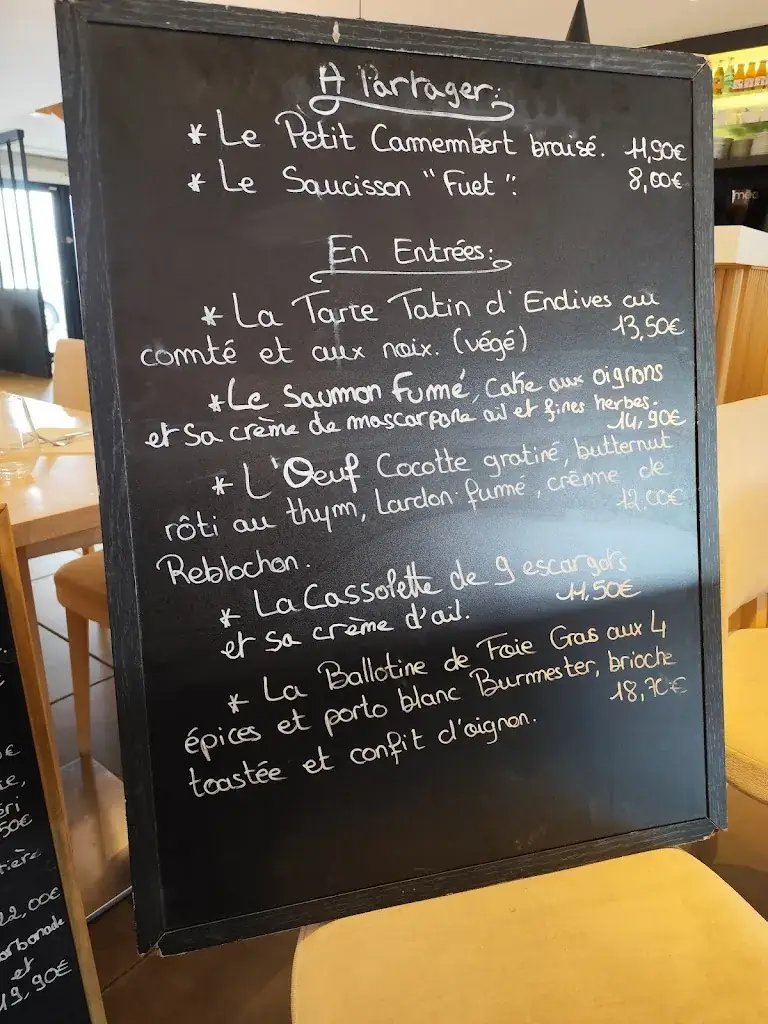 A Partager:
* Le Petit Camembert braisé. 11,90€
* Le Saucisson "Fuet": 8,00€
En Entrées:
* La Tarte Tatin d'Endives au
comté et aux noix. (végé) 13,50€
* Le Saumon Fumé, Cake aux oignons
et sa crème de mascarpone ail et fines herbes. 14,90€
* L'Oeuf Cocotte gratiné, butternut
rôti au thym, Lardon fumé, crème de
Reblochon. 12,00€
* La Cassolette de 9 escargots
et sa crème d'ail. 11,50€
* La Ballotine de Foie Gras aux 4
épices et porto blanc Burmester, brioche
toastée et confit d'oignon. 18,70€
€
50€
22,00€
et
19,90€